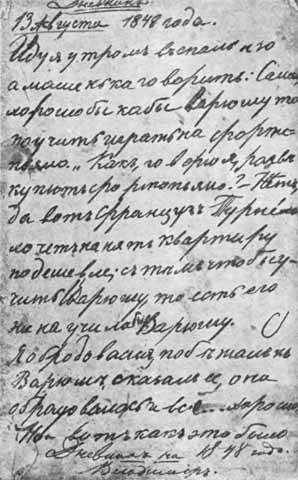 Дневникъ
13 Августа 1848 года.
Иду я утромъ въ спальню
а мамаша говоритъ: Саша,
хорошобы кабы Варюшу то
поучить играть на фортеп-
ьяно." Какъ, говорю я, развѣ
купютъ фортопьяно? — Нѣтъ
да вотъ Французъ
хочетъ нанять квартиру
подешевле; съ тѣмъ чтобъ у-
чить Варюшу, то есть его
жена учила бы Варюшу.
Я обрадовался, побѣжалъ къ
Варюшѣ, сказалъ ей, она
обрадовалась и все хорошо
вотъ какъ это было
Дневникъ на 1848 годъ.